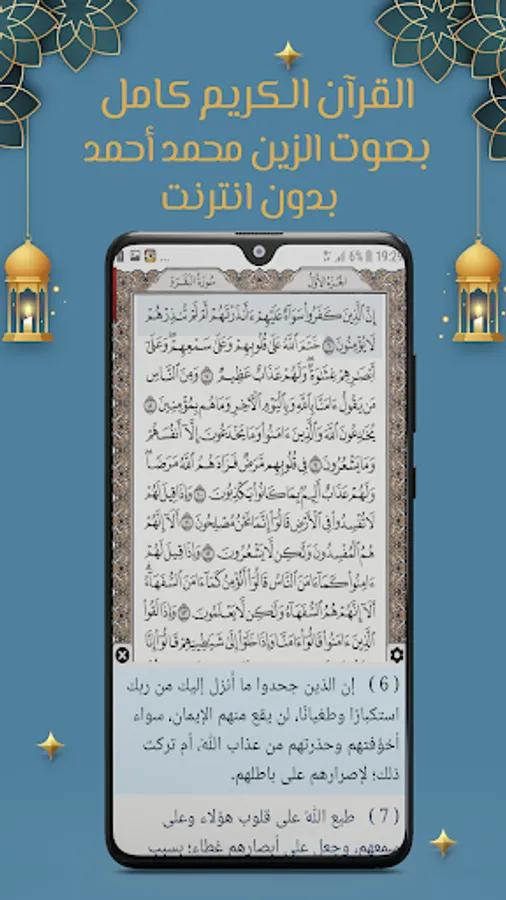 القرآن الكريم كامل
بصوت الزين محمد أحمد
بدون انترنت
6% 19:29
الجزء الأول
سورة البقرة
إِنَّ الَّذِينَ كَفَرُوا سَوَاءٌ عَلَيْهِمْ ءَأَنذَرْتَهُمْ أَمْ لَمْ تُنذِرْهُمْ
لَا يُؤْمِنُونَ ٦ خَتَمَ اللَّهُ عَلَىٰ قُلُوبِهِمْ وَعَلَىٰ سَمْعِهِمْ ۖ وَعَلَىٰ
أَبْصَارِهِمْ غِشَاوَةٌ ۖ وَلَهُمْ عَذَابٌ عَظِيمٌ ٧ وَمِنَ النَّاسِ
مَن يَقُولُ ءَامَنَّا بِاللَّهِ وَبِالْيَوْمِ الْآخِرِ وَمَا هُم بِمُؤْمِنِينَ ٨
يُخَادِعُونَ اللَّهَ وَالَّذِينَ ءَامَنُوا وَمَا يَخْدَعُونَ إِلَّا أَنفُسَهُمْ
وَمَا يَشْعُرُونَ ٩ فِي قُلُوبِهِم مَّرَضٌ فَزَادَهُمُ اللَّهُ مَرَضًا ۖ
وَلَهُمْ عَذَابٌ أَلِيمٌ بِمَا كَانُوا يَكْذِبُونَ ١٠ وَإِذَا قِيلَ لَهُمْ
لَا تُفْسِدُوا فِي الْأَرْضِ قَالُوا إِنَّمَا نَحْنُ مُصْلِحُونَ ١١ أَلَا إِنَّهُمْ
هُمُ الْمُفْسِدُونَ وَلَٰكِن لَّا يَشْعُرُونَ ١٢ وَإِذَا قِيلَ لَهُمْ
ءَامِنُوا كَمَا ءَامَنَ النَّاسُ قَالُوا أَنُؤْمِنُ كَمَا ءَامَنَ السُّفَهَاءُ ۗ
أَلَا إِنَّهُمْ هُمُ السُّفَهَاءُ وَلَٰكِن لَّا يَعْلَمُونَ ١٣ وَإِذَا لَقُوا
الَّذِينَ ءَامَنُوا قَالُوا ءَامَنَّا وَإِذَا خَلَوْا إِلَىٰ شَيَاطِينِهِمْ قَالُوا إِنَّا
(6) إن الذين جحدوا ما أُنزل إليك من ربك
استكبارًا وطغيانًا، لن يقع منهم الإيمان، سواء
أخوَّفتهم وحذرتهم من عذاب الله، أم تركت
ذلك؛ لإصرارهم على باطلهم.
(7) طبع الله على قلوب هؤلاء وعلى
سمعهم، وجعل على أبصارهم غطاء؛ بسبب